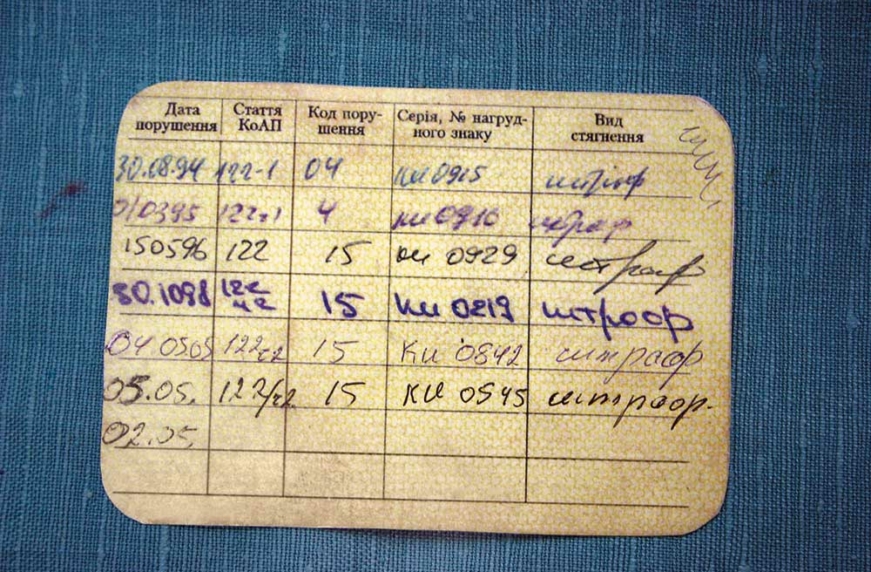 Дата порушення Стаття КоАП Код пору- шення Серія, № нагруд- ного знаку Вид стягнення
30.08.94 122-1 04 ки 0915 штраф
010395 122ч1 4 ки 0916 штраф
150596 122 15 ки 0929 штраф
30.1098 122 ч2 15 ки 0219 штраф
04 0505 122ч2 15 Ки 0842 штраф
05.05. 122/ч2 15 КИ 0545 штраф.
02.05.